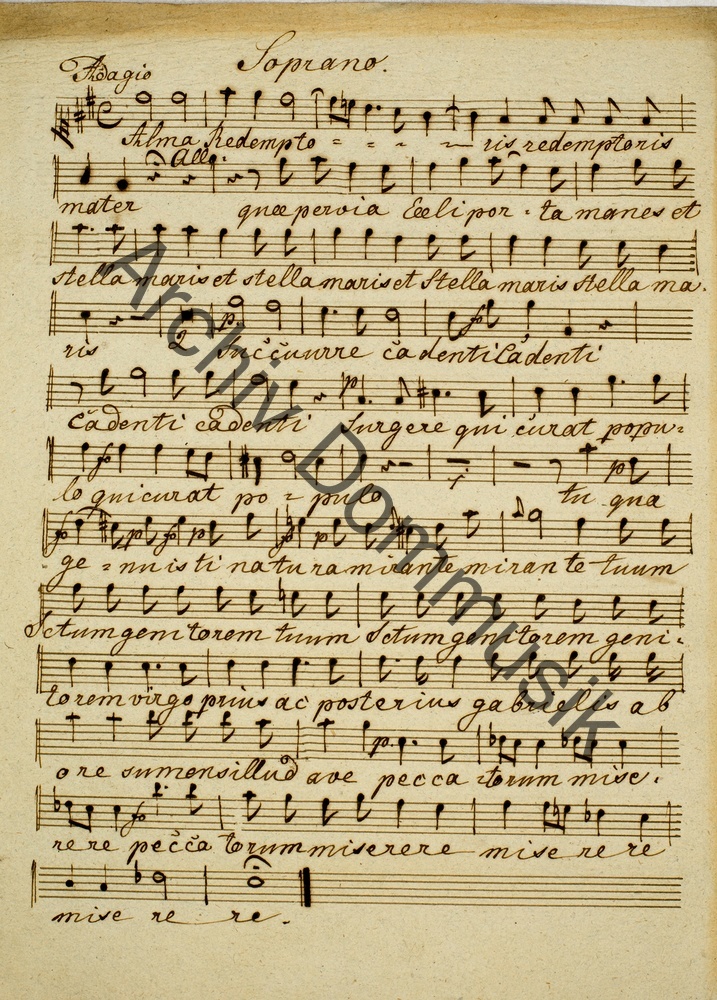 Soprano.
Adagio
Alma Redempto - - - - ris redemptoris
Allo:
mater quae pervia Coeli por - ta manes et
stella maris et stella maris et stella maris stella ma.
ris 2 p. Succuurre cadenti fo Cadenti
cadenti cadenti p Surgere qui curat popu=
fo p
lo qui curat po = pulo 1 tu qua
fo p fo p fo p
ge = nuisti natura mirante mirante tuum
Sctum genitorem tuum Sctum genitorem geni=
torem virgo prius ac posterius gabrielis ab
p.
ore sumens illud ave pecca torum mise.
fo
rere pecca torum miserere mise re re
mise re re.
Archiv Dommusik